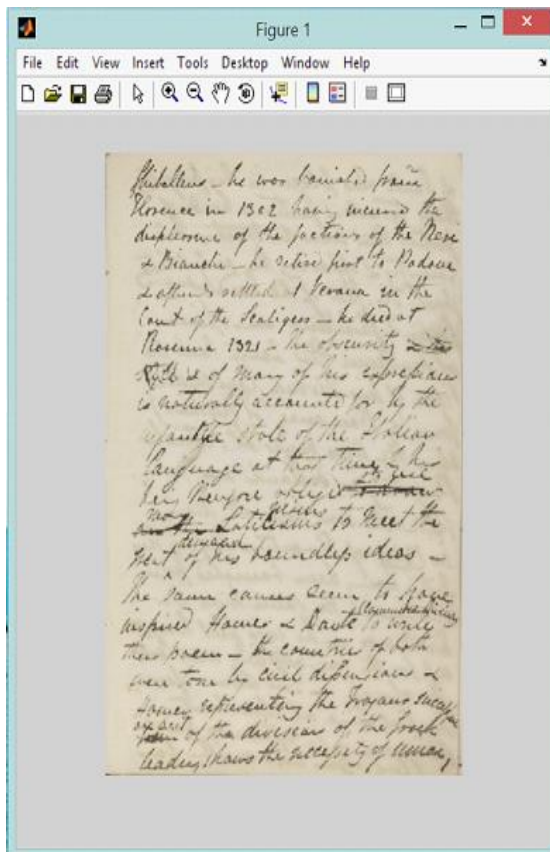 Figure 1
File Edit View Insert Tools Desktop Window Help
Ghibellines – he was banished from
Florence in 1302 having incurred the
displeasure of the factions of the Neri
& Bianchi – he retired first to Padova
& afterwds settled at Verona in the
Court of the Scaligers – he died at
Ravenna 1321 – the obscurity in the
style is of many of his expressions
is naturally accounted for by the
infantine state of the Italian
language at that time & his
being therefore obliged
Latinisms to meet the
demand
of his boundless ideas –
The same causes seem to have
inspired Homer & Dante to write
their poem – the countries of both
were torn by civil dissensions &
Homer representing the Trojans
of the divisions of the Greek
leaders shows the necessity of union,